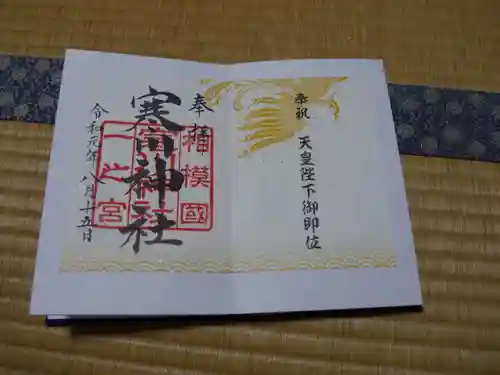 奉祝
天皇陛下御即位
奉拝
寒川神社
相模國
一之宮
令和元年八月十五日